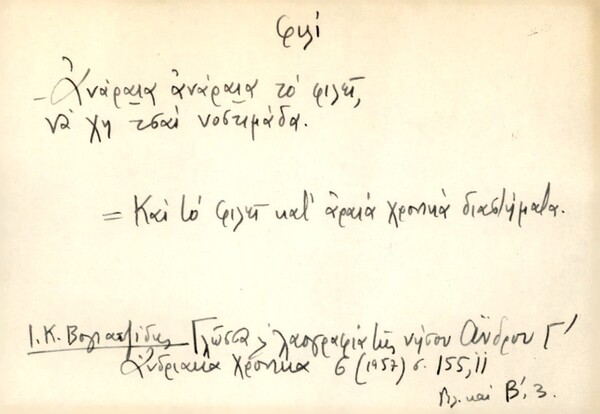 φιλί
– Ἀνάραια ἀνάραια τό φιλί,
νἄ χη τσαί νοστιμάδα.
= Καί τό φιλί κατ' ἀραιά χρονικά διαστήματα.
Ι. Κ. Βογιατζίδης Γλῶσσα κ λαογραφία τῆς νήσου Ἄνδρου Γ'
Ἀνδριακά Χρονικά 6 (1957) σ. 155, 11
Βλ. καί Β', 3.